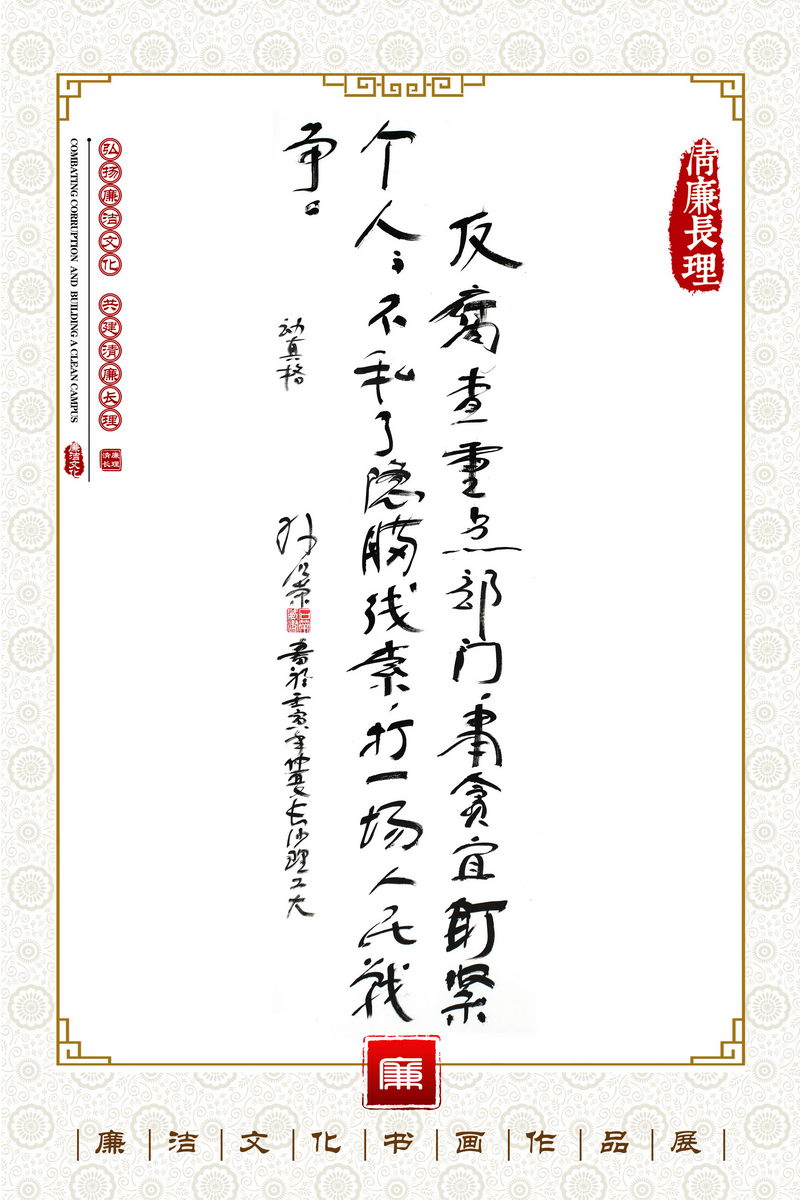 清廉長理
反腐查重点部门,肃贪宜盯紧
个人,人人不私了隐瞒线索,打一场人民战
争。
动真格
书于壬寅年仲夏长沙理工大
弘扬廉洁文化 共建清廉长理
清廉长理
COMBATING CORRUPTION AND BUILDING A CLEAN CAMPUS
廉洁文化
廉
廉洁文化书画作品展